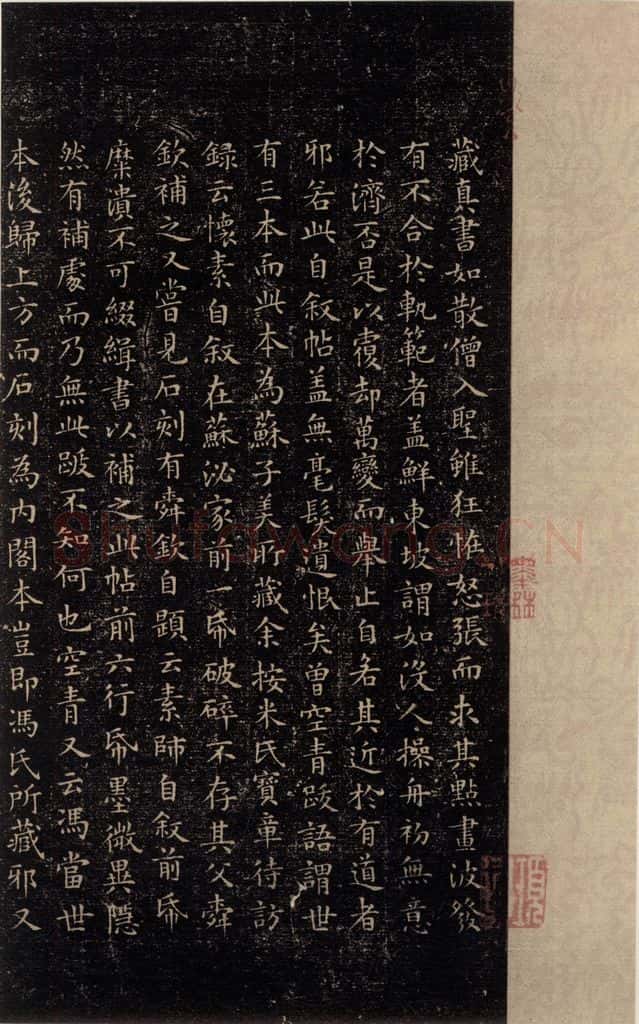 藏真書如散僧入聖雖狂怪怒張而求其點畫波發
有不合於軌範者盖鮮東坡謂如沒人操舟初無意
於濟否是以覆却萬變而舉止自若其近於有道者
邪若此自叙帖盖無毫髮遺恨矣曾空青跋語謂世
有三本而此本為蘇子美所藏余按米氏寶章待訪
録云懷素自叙在蘇泌家前一帋破碎不存其父舜
欽補之又嘗見石刻有舜欽自題云素師自叙前帋
糜潰不可綴緝書以補之此帖前六行帋墨微異隱
然有補處而乃無此跋不知何也空青又云馮當世
本後歸上方而石刻為内閣本豈即馮氏所藏邪又
Shufawang.CN